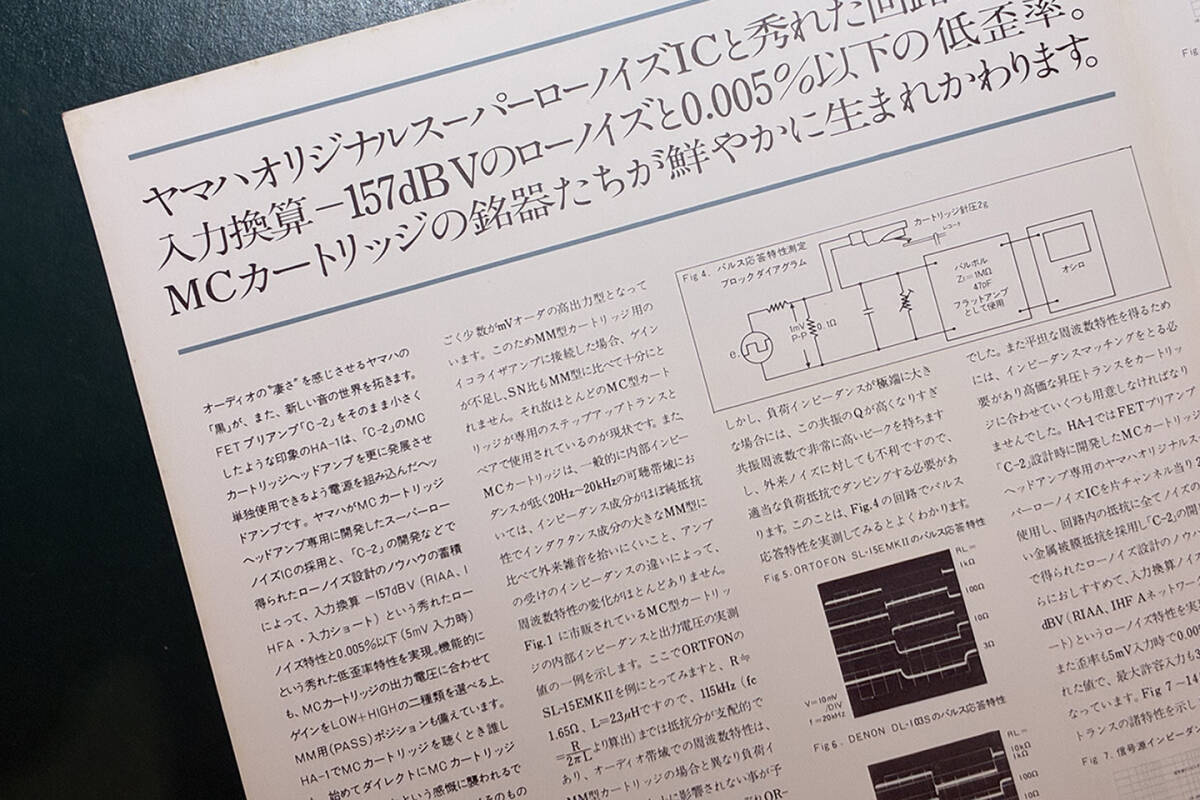 ヤマハオリジナルスーパーローノイズICと秀れた回路
入力換算−157dBVのローノイズと0.005%以下の低歪率。
MCカートリッジの銘器たちが鮮やかに生まれかわります。
オーディオの"凄さ"を感じさせるヤマハの
「黒」が、また、新しい音の世界を拓きます。
FETプリアンプ「C-2」をそのまま小さく
したような印象のHA-1は、「C-2」のMC
カートリッジヘッドアンプを更に発展させ
単独使用できるよう電源を組み込んだヘッ
ドアンプです。ヤマハがMCカートリッジ
ヘッドアンプ専用に開発したスーパーロー
ノイズICの採用と、「C-2」の開発などで
得られたローノイズ設計のノウハウの蓄積
によって、入力換算 −157dBV (RIAA、I
HFA・入力ショート) という秀れたロー
ノイズ特性と0.005%以下 (5mV入力時)
という秀れた低歪率特性を実現。機能的に
も、MCカートリッジの出力電圧に合わせて
ゲインをLOW+HIGHの二種類を選べる上、
MM用(PASS)ポジションも備えています。
HA-1でMCカートリッジを聴くとき誰し
、始めてダイレクトにMCカートリッジ
という感慨に襲われるで
ごく少数がmVオーダの高出力型となって
います。このためMM型カートリッジ用の
イコライザアンプに接続した場合、ゲイン
が不足し、SN比もMM型に比べて十分にと
れません。それ故ほとんどのMC型カート
リッジが専用のステップアップトランスと
ペアで使用されているのが現状です。また、
MCカートリッジは、一般的に内部インピー
ダンスが低く20Hz〜20kHzの可聴帯域にお
いては、インピーダンス成分がほぼ純抵抗
性でインダクタンス成分の大きなMM型に
比べて外来雑音を拾いにくいこと、アンプ
の受けのインピーダンスの違いによって、
周波数特性の変化がほとんどありません。
Fig.1 に市販されているMC型カートリッ
ジの内部インピーダンスと出力電圧の実測
値の一例を示します。ここでORTFONの
SL-15EMKIIを例にとってみますと、R≒
1.65Ω、L=2.3μHですので、115kHz (fc
=R/2πLより算出) までは抵抗分が支配的で
あり、オーディオ帯域での周波数特性は、
MM型カートリッジの場合と異なり負荷イ
に影響されない事が予
Fig 4. パルス応答特性測定
ブロックダイアグラム
カートリッジ針圧2g
レコード
e
1mV
P-P
0.1Ω
バルボル
Zi=1MΩ
47pF
フラットアンプ
として使用
オシロ
しかし、負荷インピーダンスが極端に大き
な場合には、この共振のQが高くなりすぎ
共振周波数で非常に高いピークを持ちます
し、外来ノイズに対しても不利ですので、
適当な負荷抵抗でダンピングする必要があ
ります。このことは、Fig.4 の回路でパルス
応答特性を実測してみるとよくわかります。
Fig 5. ORTOFON SL-15EMKIIのパルス応答特性
RL=
1kΩ
100Ω
10Ω
3Ω
V=10mV
/DIV
f=20kHz
Fig 6. DENON DL-103Sのパルス応答特性
RL=
10kΩ
1kΩ
100Ω
でした。また平坦な周波数特性を得るため
には、インピーダンスマッチングをとる必
要があり高価な昇圧トランスをカートリッ
ジに合わせていくつも用意しなければなり
ませんでした。HA-1ではFETプリアンプ
「C-2」設計時に開発したMCカートリッジ
ヘッドアンプ専用のヤマハオリジナルス
パーローノイズICを片チャンネル当り2
使用し、回路内の抵抗に全てノイズの
い金属被膜抵抗を採用し「C-2」の開
で得られたローノイズ設計のノウハ
らにおしすすめて、入力換算ノイズ
dBV (RIAA、IHF Aネットワー
ート) というローノイズ特性を実
また歪率も5mV入力時で0.00
れた値で、最大許容入力も3
なっています。Fig 7〜14
トランスの諸特性を示し
Fig 7. 信号源インピーダ
Fig